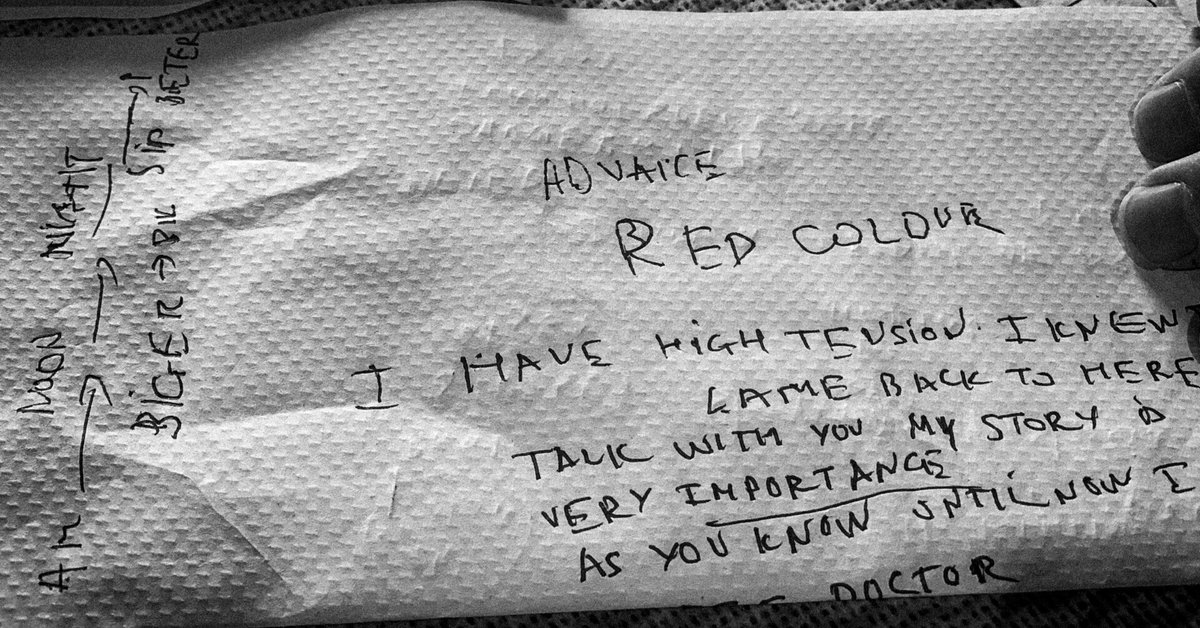 ADVAICE
RED COLOUR
I HAVE HIGH TENSION. I KNEW I
CAME BACK TO HERE
TALK WITH YOU MY STORY is
VERY IMPORTANCE
AS YOU KNOW UNTIL NOW I
DOCTOR
AM → NOON → NIGHT
BIGER → BIK SIP BETER